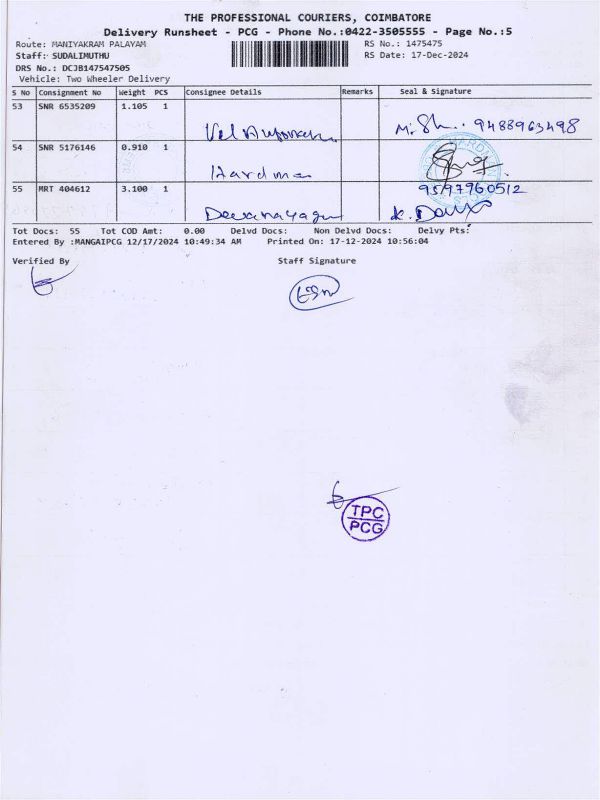 THE PROFESSIONAL COURIERS, COIMBATORE
Delivery Runsheet - PCG - Phone No.:0422-3505555 - Page No.:5
Route: MANIYAKRAM PALAYAM RS No.: 1475475
Staff: SUDALIMUTHU RS Date: 17-Dec-2024
DRS No.: DCJB147547505
Vehicle: Two Wheeler Delivery
S No Consignment No Weight PCS Consignee Details Remarks Seal & Signature
53 SNR 6535209 1.105 1
9488963498
54 SNR 5176146 0.910 1
Hardma
9597960512
55 MRT 404612 3.100 1
Devanayagm
Tot Docs: 55 Tot COD Amt: 0.00 Delvd Docs: Non Delvd Docs: Delvy Pts:
Entered By :MANGAIPCG 12/17/2024 10:49:34 AM Printed On: 17-12-2024 10:56:04
Verified By Staff Signature
TPC
PCG